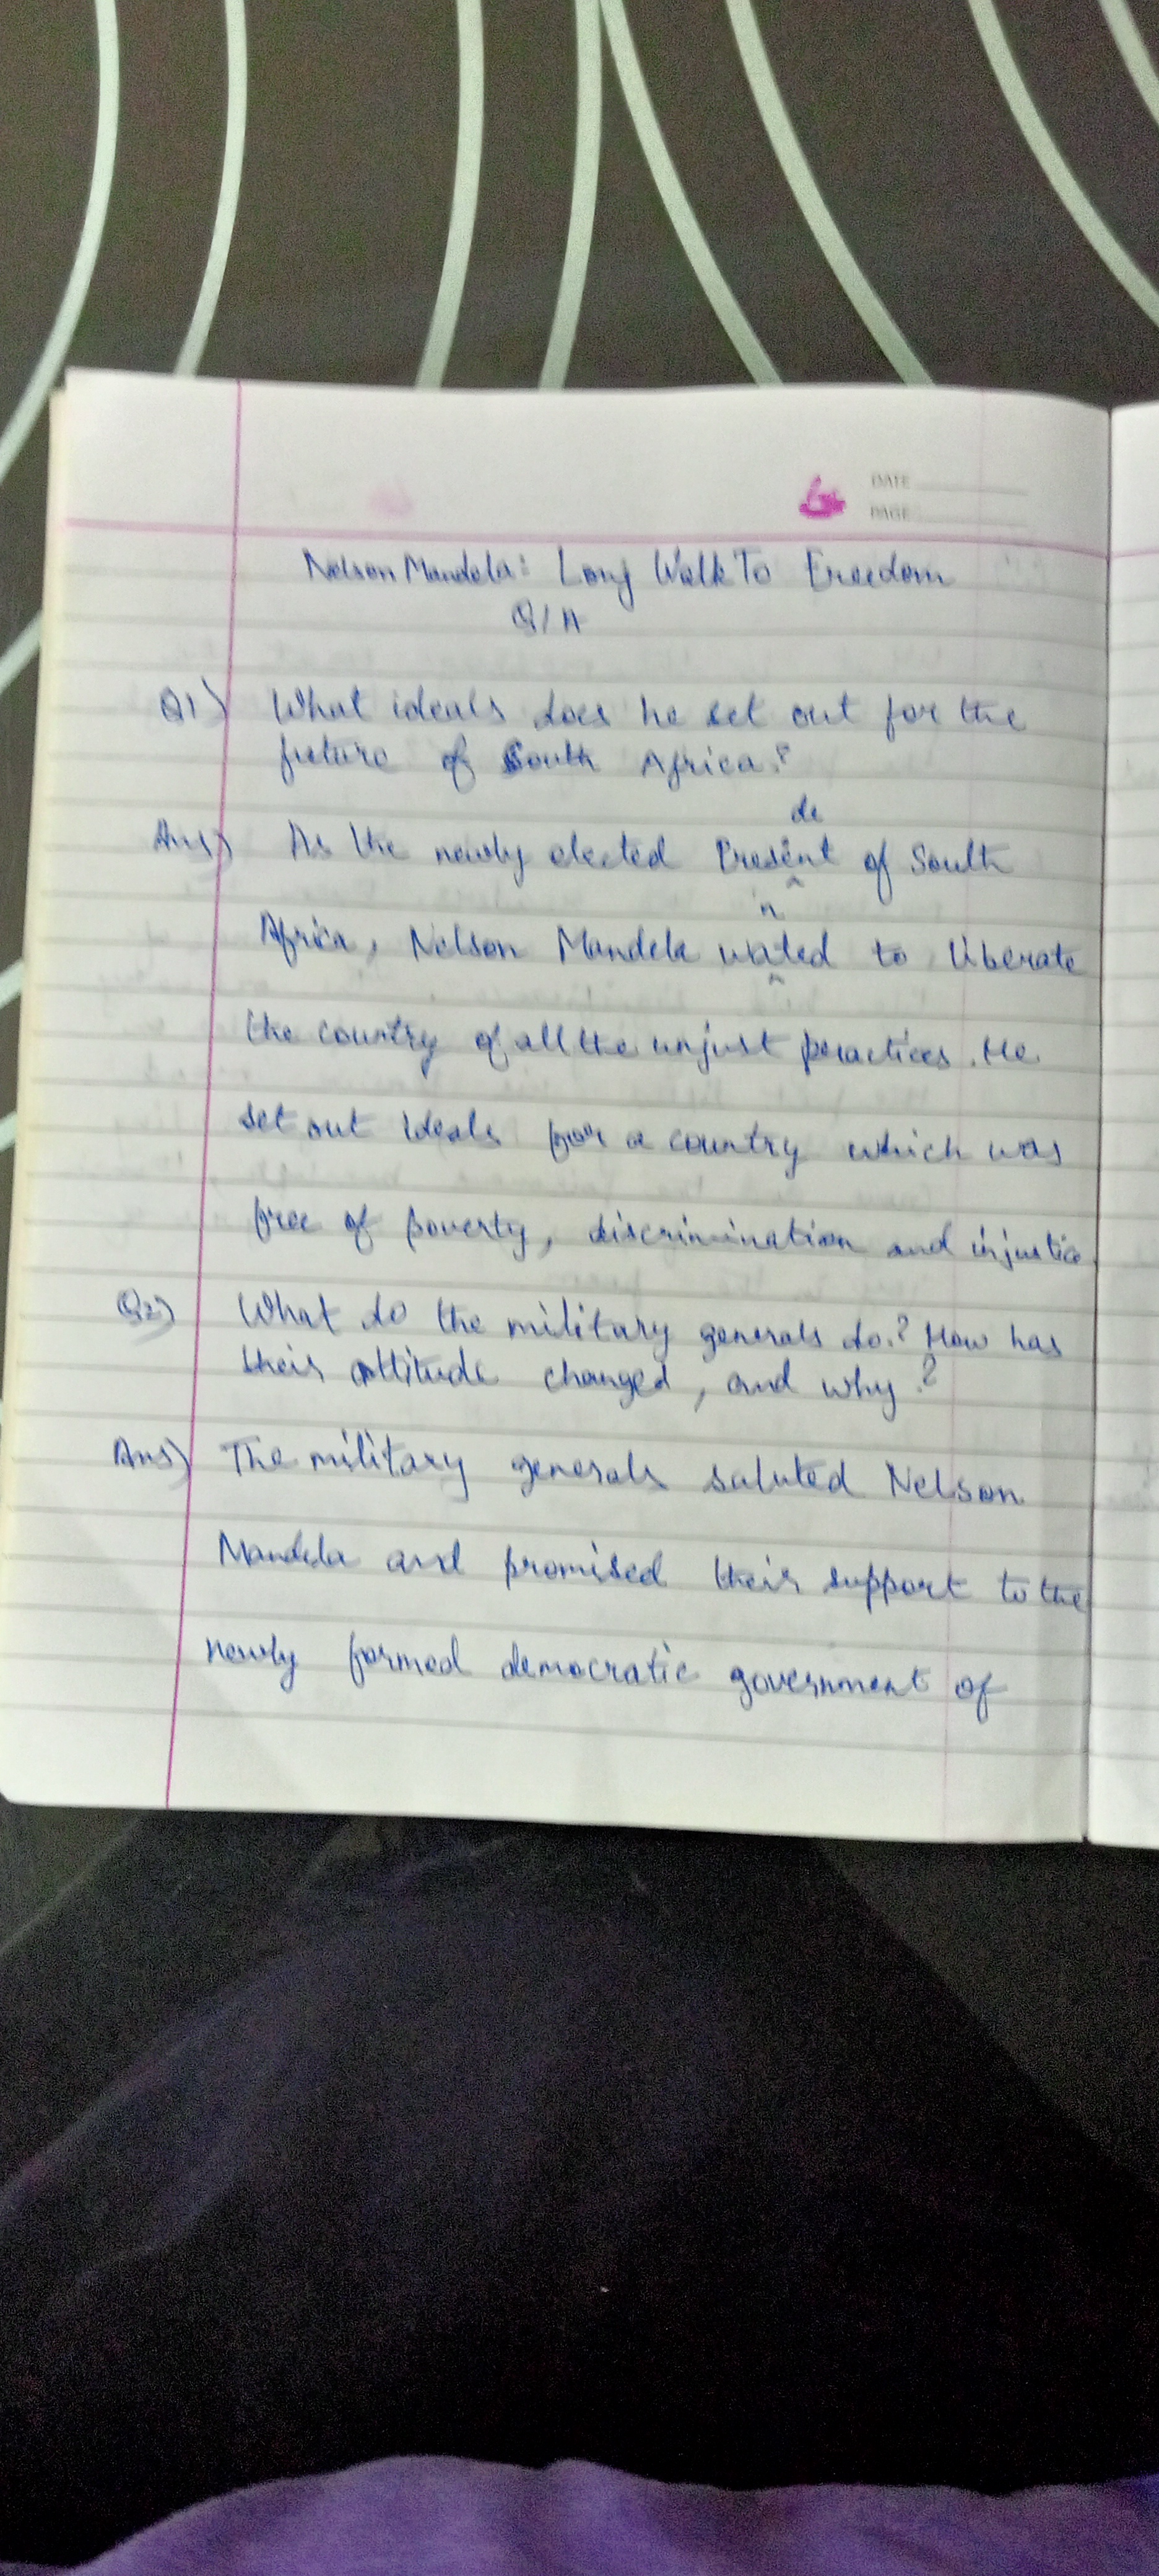 DATE
PAGE
Nelson Mandela: Long Walk To Freedom
Q/A
Q1) What ideals does he set out for the
future of South Africa?
de
Ans) As the newly elected Presint of South
n
Africa, Nelson Mandela wated to liberate
the country of all the unjust practices. He
set out ideals for a country which was
free of poverty, discrimination and injustice
Q2) What do the military generals do? How has
their attitude changed, and why?
Ans) The military generals saluted Nelson
Mandela and promised their support to the
newly formed democratic government of